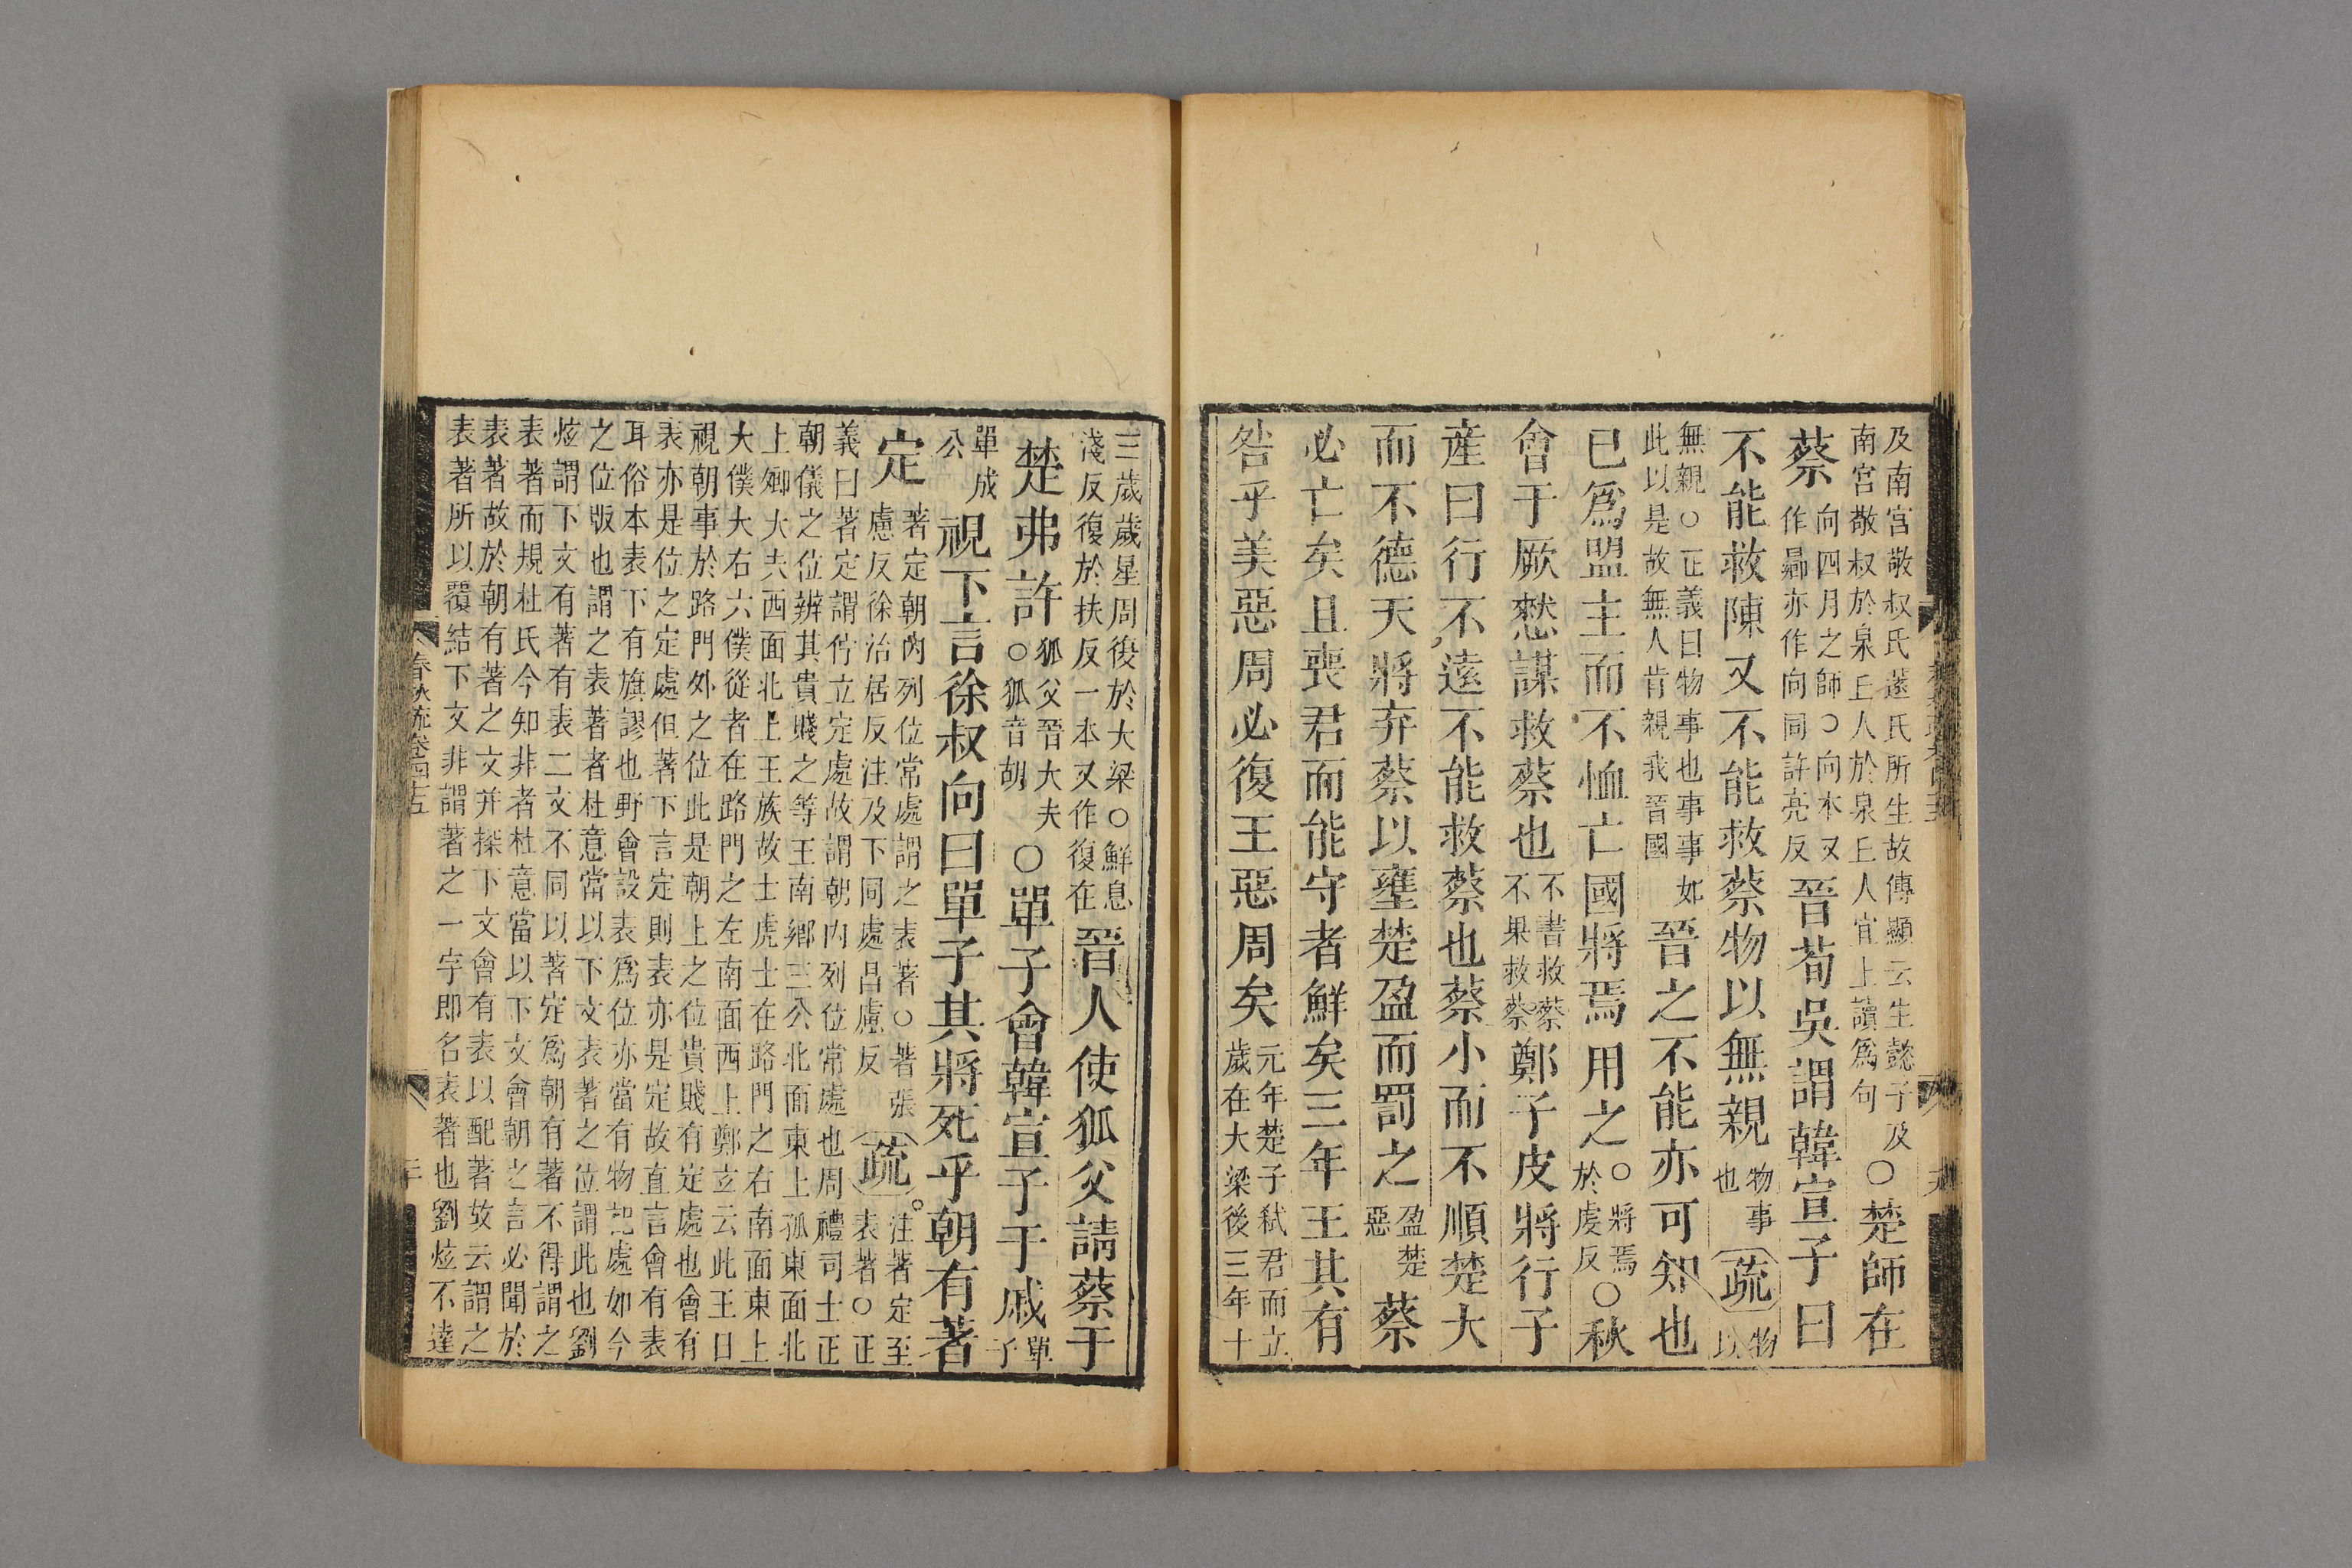 及南宮敬叔氏薳氏所生故傳顯云生懿子及
南宮敬叔於泉丘人於泉丘人宜上讀爲句
〇楚師在
蔡
向四月之師〇向本又
作曏亦作向同許亮反
晉荀吳謂韓宣子曰
不能救陳又不能救蔡物以無親
物事
也
疏
物
以
無親〇正義曰物事也事事如
此以是故無人肯親我晉國
晉之不能亦可知也
已爲盟主而不恤亡國將焉用之
〇將焉
於虔反
〇秋
會于厥憖謀救蔡也
不書救蔡
不果救蔡
鄭子皮將行子
產曰行不遠不能救蔡也蔡小而不順楚大
而不德天將弃蔡以壅楚盈而罰之
盈楚
惡
蔡
必亡矣且喪君而能守者鮮矣三年王其有
咎乎美惡周必復王惡周矣
元年楚子弒君而立
歲在大梁後三年十
三歲歲星周復於大梁〇鮮息
淺反復於扶反一本又作復在
晉人使狐父請蔡于
楚弗許
狐父晉大夫
〇狐音胡
〇單子會韓宣子于戚
單
子
單成
公
視下言徐叔向曰單子其將死乎朝有著
定
著定朝內列位常處謂之表著〇著張
慮反徐治居反注及下同處昌慮反
疏
注著定至
表著〇正
義曰著定謂佇立定處故謂朝內列位常處也周禮司士正
朝儀之位辨其貴賤之等王南鄉三公北面東上孤東面北
上卿大夫西面北上王族故士虎士在路門之右南面東上
大僕大右六僕從者在路門之左南面西上鄭玄云此王日
視朝事於路門外之位此是朝上之位貴賤有定處也會有
表亦是位之定處但著下言定則表亦是定故直言會有表
耳俗本表下有旗謬也野會設表爲位亦當有物記處如今
之位版也謂之表著者杜意當以下文表著之位謂此也劉
炫謂下文有著有表二文不同以著定爲朝有著不得謂之
表著而規杜氏今知非者杜意當以下文會朝之言必聞於
表著故於朝有著之文并探下文會有表以配著故云謂之
表著所以覆結下文非謂著之一字即名表著也劉炫不達
春秋疏卷四十五